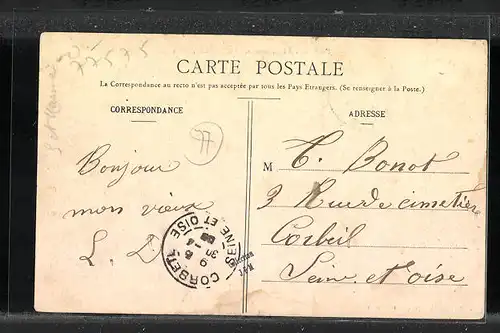 77575
CARTE POSTALE
La Correspondance au recto n'est pas acceptée par tous les Pays Etrangers. (Se renseigner à la Poste.)
CORRESPONDANCE
ADRESSE
77
Bonjour
mon vieux
L. D
M C. Bonot
3 Rue de cimetière
Corbeil
Seine et oise
CORBEIL
SEINE ET OISE